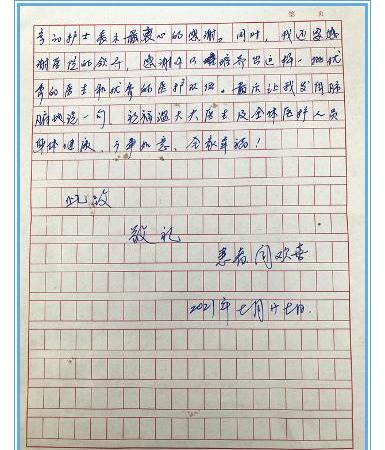 第 页
秀的护士表示最衷心的感谢。同时，我还要感
谢医院的领导，感谢你们培养出这样一批优
秀的医生和优秀的医护人员。最后让我发自肺
腑地说一句 祝福温大夫医生及全体医护人员
身体健康，万事如意，全家幸福！
此致
敬礼
患者闫欢喜
2021年七月廿七日